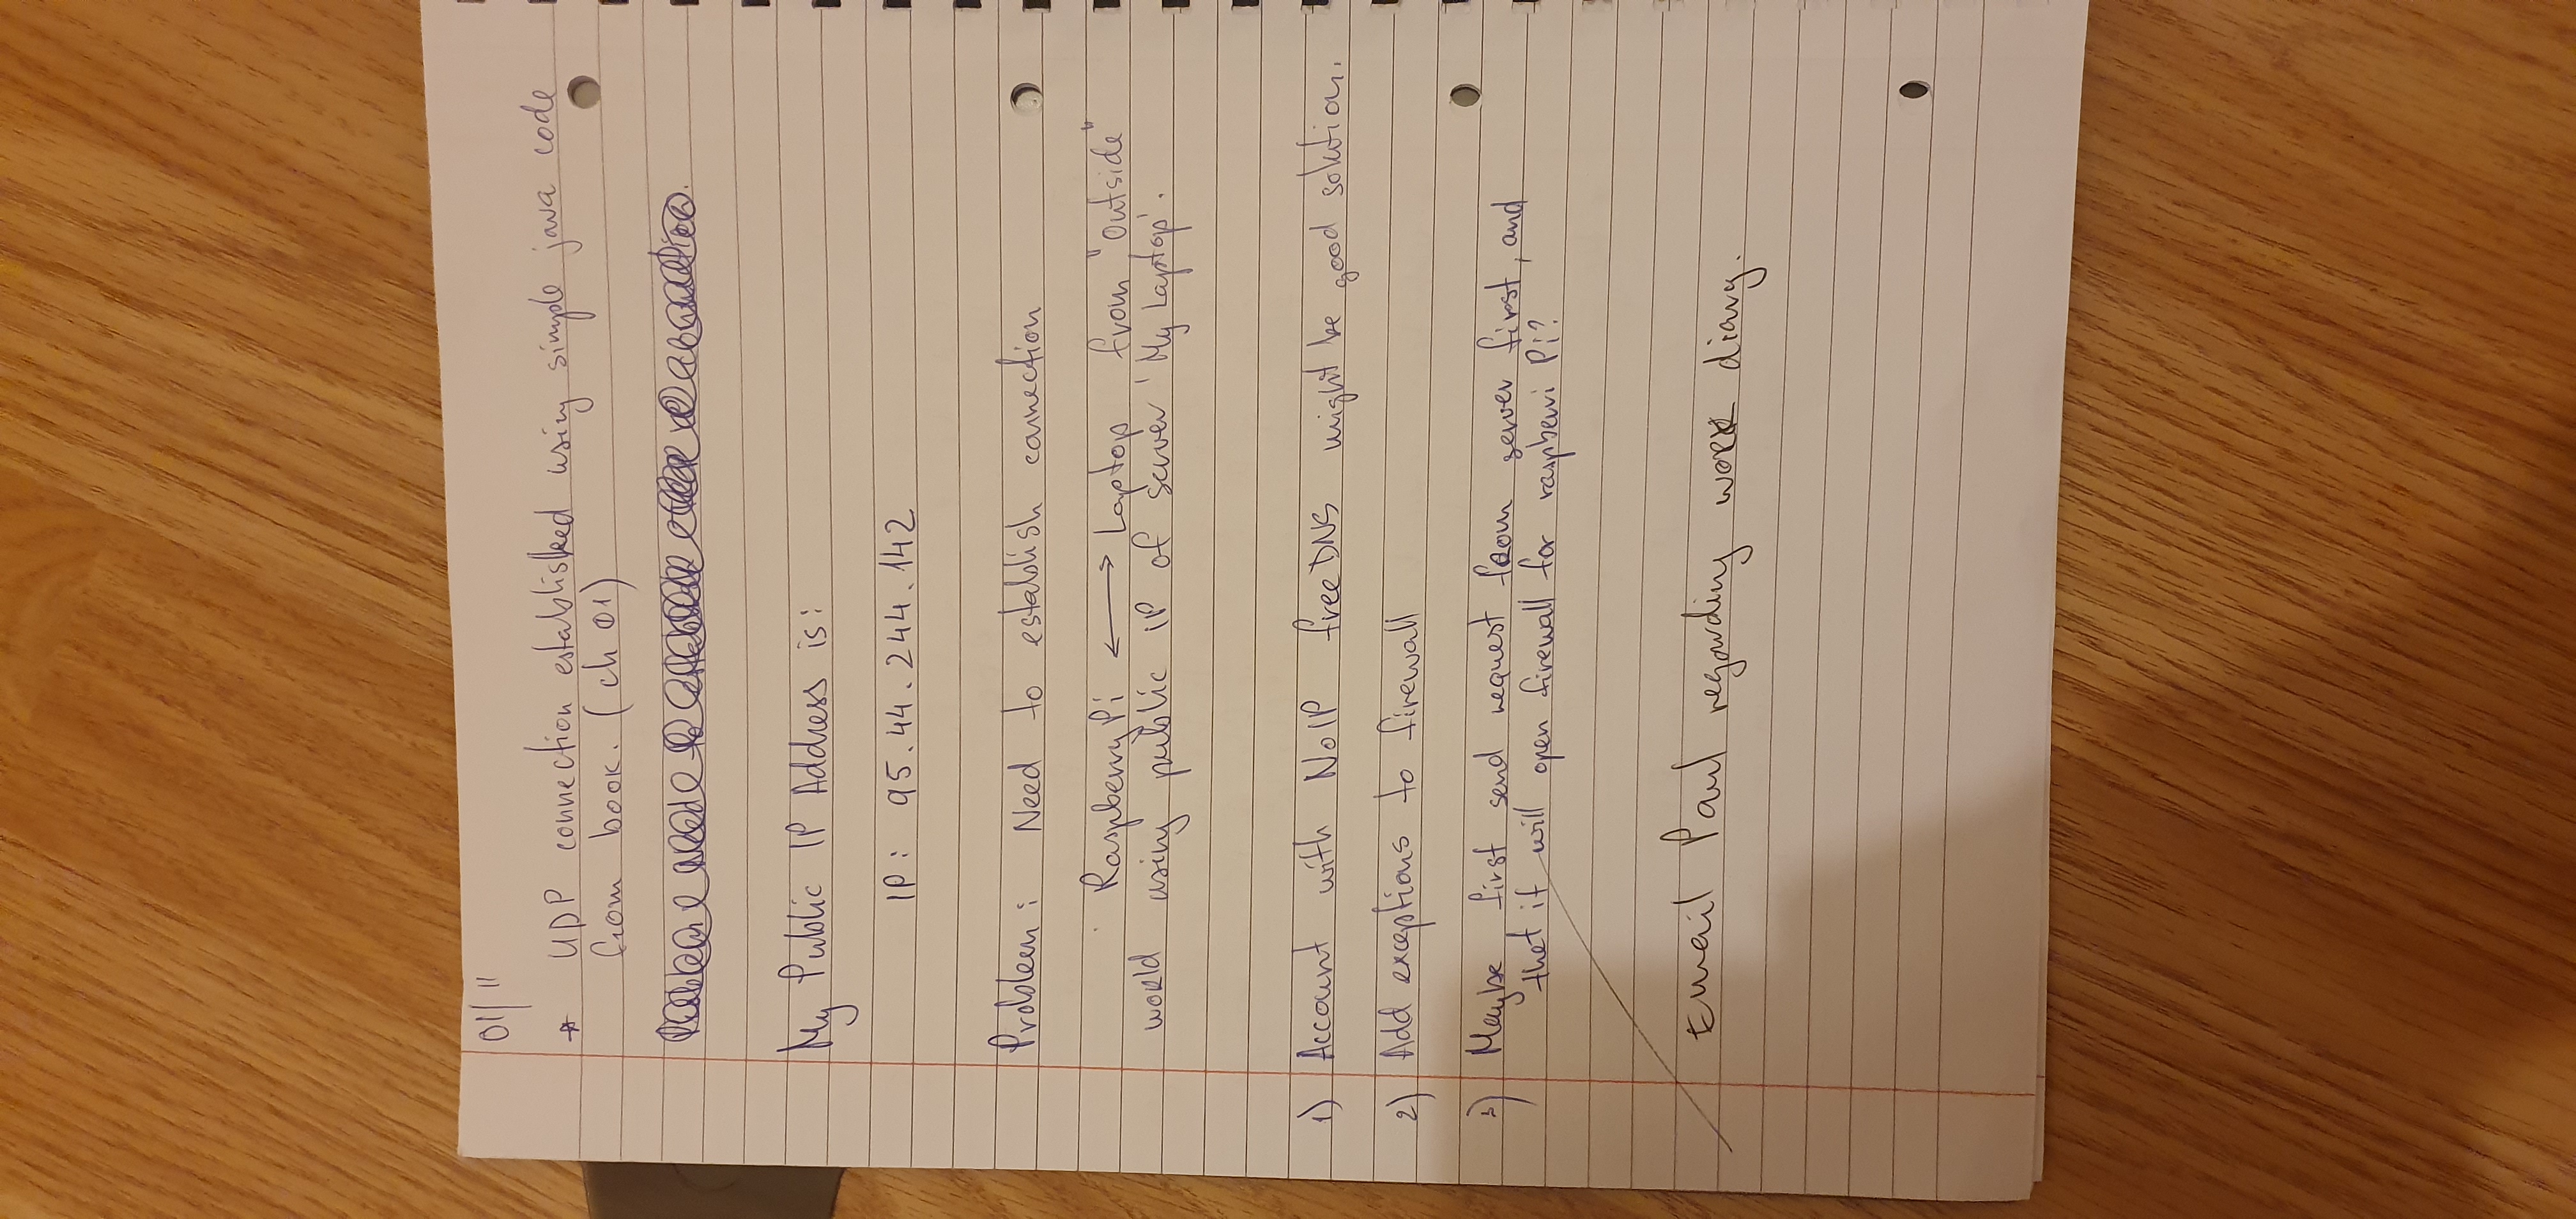 01/11
* UDP connection established using simple java code
from book. (ch 01)
My Public IP Address is:
IP: 95.44.244.142
Problem: Need to establish connection
Raspberry Pi ⟷ Laptop from "outside"
world using public IP of server 'My Laptop'.
1) Account with NoIP free DNS might be good solution.
2) Add exceptions to firewall
3) Maybe, first send request from server first, and
that it will open firewall for raspberri Pi?
Email Paul regarding work diary.